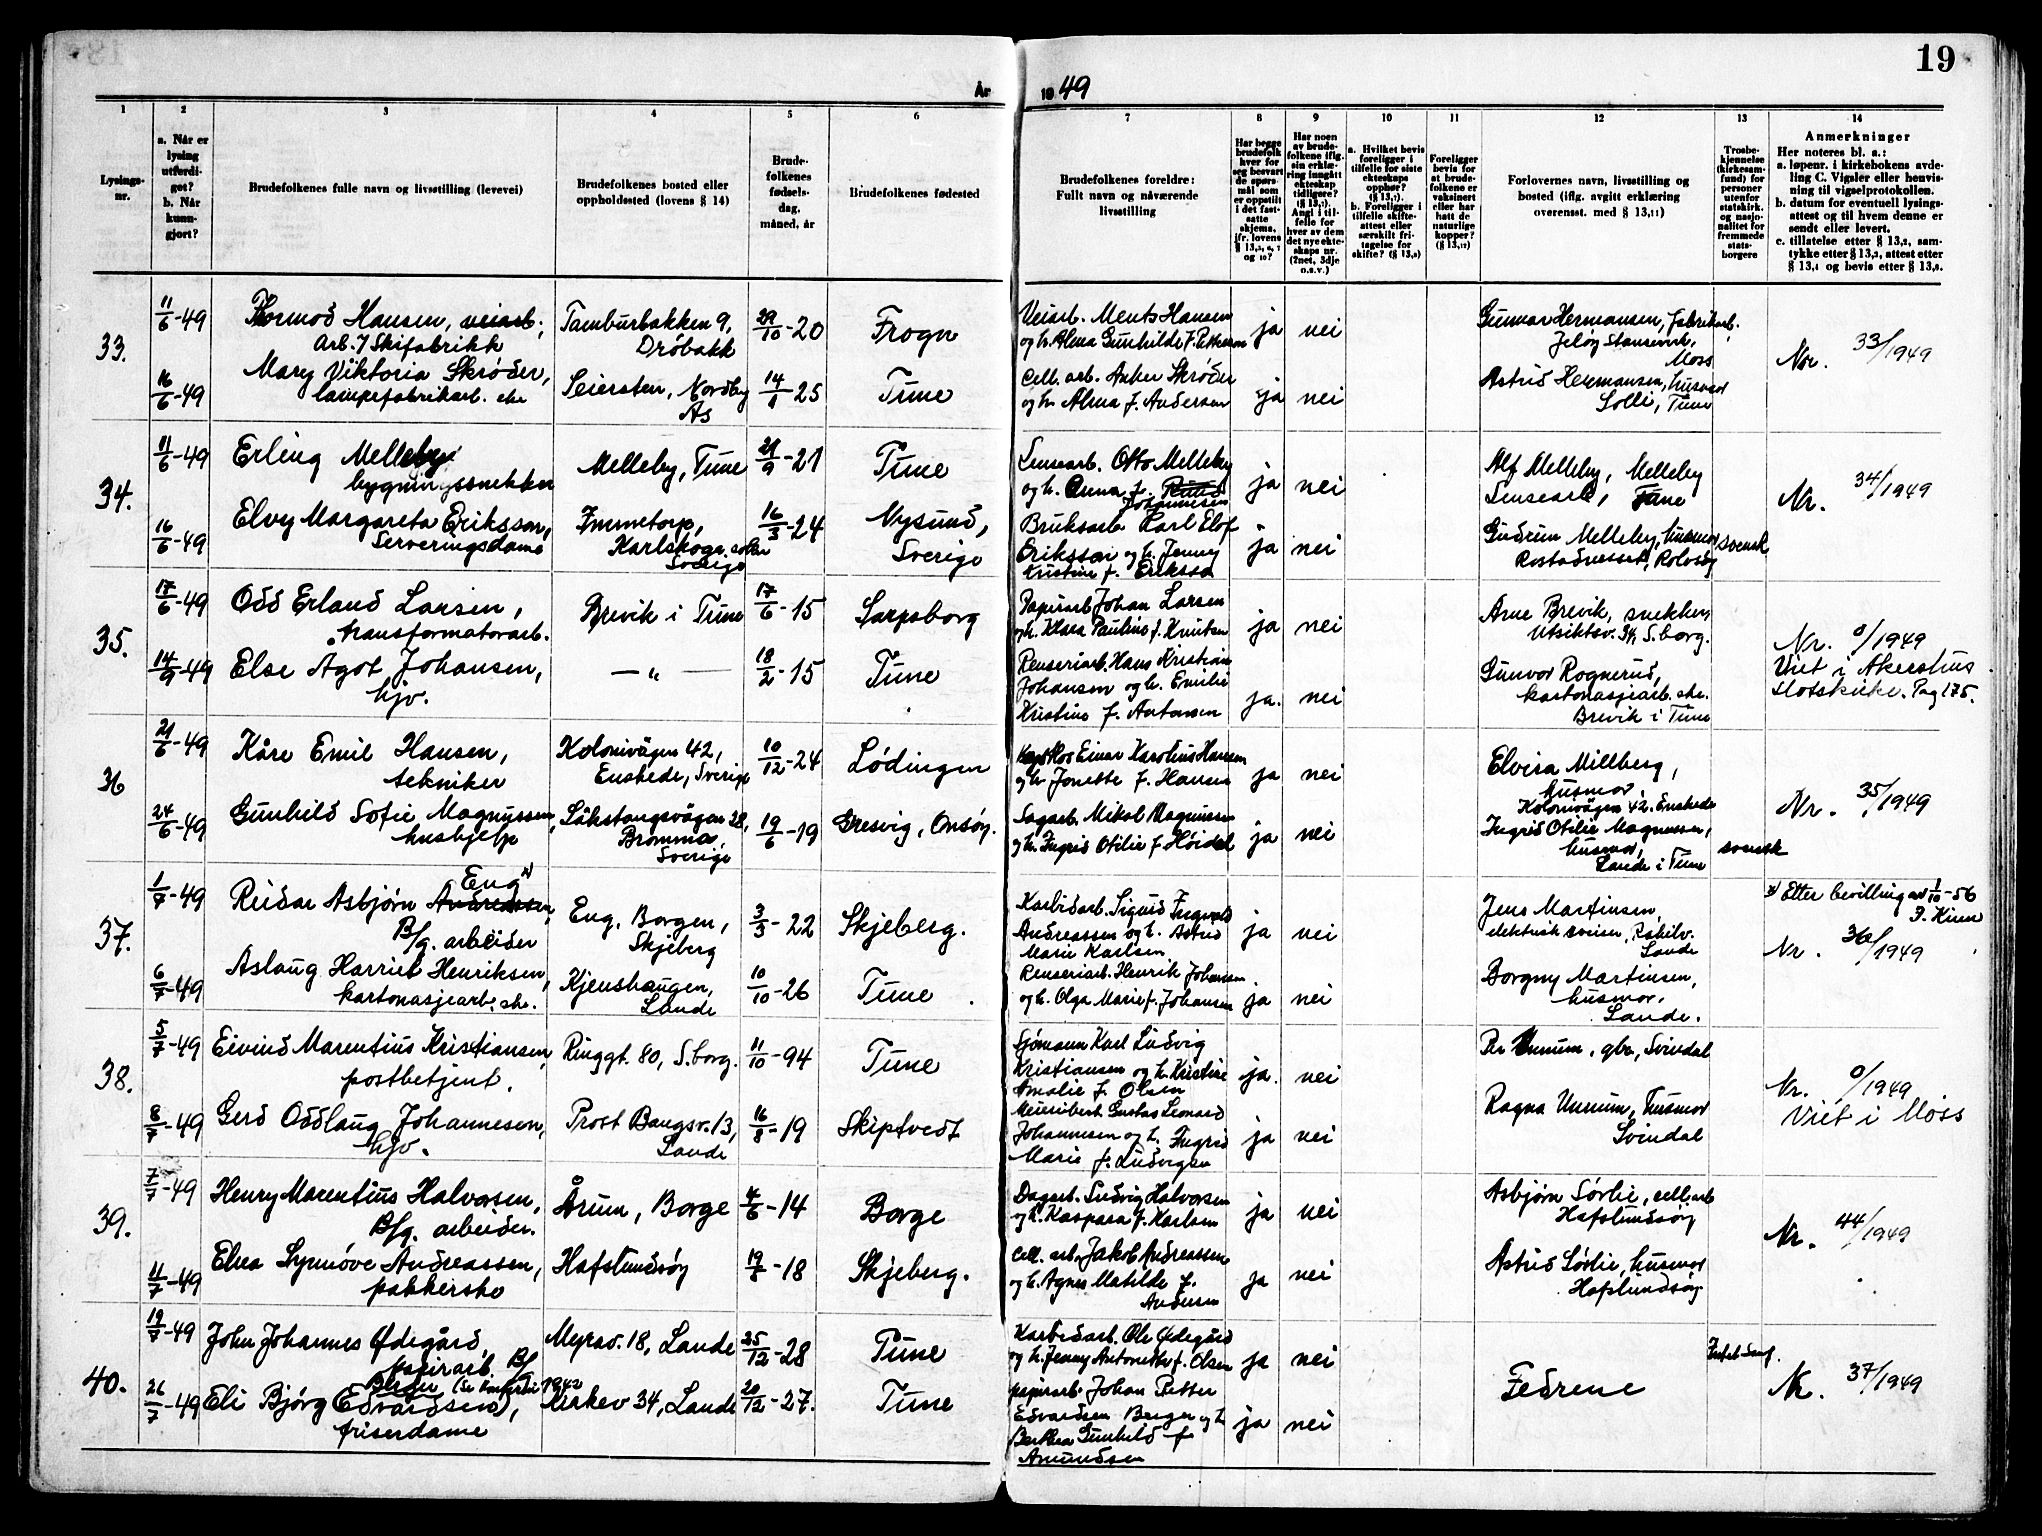 19
År
19 49
1
2
3
4
5
6
7
8
9
10
11
12
13
14
Lysings-
nr.
a. Når er
lysing
utferdi-
get?
b. Når
kunn-
gjort?
Brudefolkenes fulle navn og livsstilling (levevei)
Brudefolkenes bosted eller
oppholdssted (lovens § 14)
Brude-
folkenes
fødsels-
dag,
måned, år
Brudefolkenes fødested
Brudefolkenes foreldre:
Fullt navn og nåværende
livsstilling
Har begge
brudefolk
hver for
seg besvart
de spørs-
mål som
er oppstilt
i det fast-
satte
skjema,
jfr. lovens
og 10?
Har noen
av brude-
folkene iflg.
sin erklæ-
ring inngått
ekteskap
tidligere?
Angi i til-
felle for
hver av dem
det nye ekte-
skaps nr.
(2net, 3dje
o.s.v.)
a. Hvilket bevis
foreligger i
tilfelle for siste
ekteskaps
opphør?
b. Foreligger i
tilfelle skifte-
attest eller
særskilt fri-
tagelse for
skifte?
Foreligger
bevis for
at brude-
folkene er
vaksinert
eller har
hatt de
naturlige
kopper?
Forlovernes navn, livsstilling og
bosted (iflg. avgitt erklæring
overensst. med § 13,11)
Trosbe-
kjennelse
(kirkesam-
fund) for
personer
utenfor
statskirk.
og nasjo-
nalitet for
fremmede
stats-
borgere
Anmerkninger
Her noteres bl. a.:
a. løpenr. i kirkebokens avde-
ling C. Vigsler eller henvis-
ning til vigselprotokollen.
b. datum for eventuell lysings-
attest og til hvem denne er
sendt eller levert.
c. tillatelse etter § 13,2, sam-
tykke etter § 13,3, attest etter
§ 13,4 og bevis etter § 13,8.
33.
11/6-49 Thormod Hansen, veiarb. Tamburbakken 9, 29/10-20 Frogn Veiarb. Ments Hansen ja nei Gunnar Hermansen, fabrikarb.
Arb. i Skifabrikk Drøbakk og h. Alma Gunhilde f. Pettersen Jeløy Moss Nr. 33/1949
16/6-49 Mary Viktoria Skrøder, Seiersten, Nordby 14/1-25 Tune Cell. arb. Anker Skrøder ja nei Astrid Hermansen, husmor
lampefabrikarb. ske Ås og h. Alma f. Andersen Solli, Tune
34.
11/6-49 Erling Melleby Melleby, Tune 21/9-21 Tune Lensearb. Otto Melleby ja nei Alf Melleby, Melleby
bygningssnekker og h. Anna f. Johannesen Lensearb, Tune Nr. 34/1949
16/6-49 Elvy Margareta Eriksson, Immetorp, 16/3-24 Nysund, Bruksarb Karl Elof ja nei Gudrun Melleby, husmor svensk
Serveringsdame Karlskoga Sverige Sverige Eriksson og h. Jenny Rostadneset, Rolvsøy
Kristine f. Eriksson
35.
17/6-49 Odd Erland Larsen, Brevik i Tune 17/6-15 Sarpsborg Papirarb Johan Larsen ja nei Arne Brevik, snekker,
transformatorarb. og h. Klara Pauline f. Knutsen Utsiktsv. 34, S.borg. Nr. 0/1949
14/9-49 Else Agot Johansen, — " — 18/2-15 Tune Renseriarb. Hans Kristian ja. nei Gunvor Rognerud, Viet i Akershus
hjv. Johansen og h. Emilie kartonasjearb. ske. slotskirke. Pag 175.
Kristine f. Antonsen Brevik i Tune
36
21/6-49 Kåre Emil Hansen, Kolonivägen 42, 10/12-24 Lødingen Einar Karolius Hansen ja nei Elvira Millberg,
tekniker Enskede, Sverige og h. Jonette f. Hansen husmor,
Kolonivägen 42. Enskede Nr. 35/1949
24/6-49 Gunhild Sofie Magnussen, Låkstangsvägen 28, 19/6-19 Gresvig, Onsøy. Sagarb. Mikal Magnussen ja nei Ingrid Otilie Magnussen,
hushjelp Bromma, Sverige og h. Ingrid Otilie f. Høidal husmor, Lande i Tune svensk
37.
1/7-49 Reidar Asbjørn Andreassen, Eng x) Eng, Borgen, 3/3-22 Skjeberg. Karbidarb. Sigurd Ingvald ja nei Jens Martinsen, x) Etter bevilling av 1/10-56
B/g. arbeider Skjeberg Andreassen og h. Astrid elektrisk sveiser,
Marie Karlsen Lande Nr. 36/1949
6/7-49 Aslaug Harriet Henriksen, Kjenshaugen, 10/10-26 Tune Renseriarb. Henrik Johansen ja nei Borgny Martinsen,
kartonasjearb. ske. Lande og h. Olga Marie f. Johansen husmor.
Lande.
38.
5/7-49 Eivind Marentius Kristiansen, Ringgt. 80, S.borg. 11/10-94 Tune Sjømann Karl Ludvig ja. nei Per Unnum, gbr, Svindal
postbetjent. Kristiansen og h. Kristine
Amalie f. Olsen Nr. 0/1949
8/7-49 Gerd Oddlaug Johannesen, Prost Bangsv. 13, 16/8-19 Skiptvedt Meieribest. Gustav Leonard ja nei Ragna Unnum, husmor Viet i Moss
hjv. Lande Johannesen og h. Ingrid Svindal
Marie f. Ludvigsen
39.
7/7-49 Henry Marentius Halvorsen, Årum, Borge 4/6-14 Borge Dagarb. Ludvig Halvorsen ja nei Asbjørn Sørlie, cell.arb
B/g. arbeider. og h. Kaspara f. Karlsen Hafslundsøy Nr. 44/1949
11/7-49 Elna Synnøve Andreassen, Hafslundsøy 19/8-18 Skjeberg. Cell. arb. Jakob Andreassen ja nei Astrid Sørlie, husmor
pakkerske og h. Agnes Matilde f. Hafslundsøy
Andersen
40.
19/7-49 John Johannes Ødegård, Myrav. 18, Lande 25/12-28 Tune Karbidarb. Ole Ødegård ja nei
papirarb B/g og h. Jenny Antonette f. Olsen
Berger Fedrene Nr. 37/1949
26/7-49 Eli Bjørg (Edvardsen), Kirkev 34, Lande 20/12-27. Tune papirarb Johan Petter ja nei
friserdame Edvardsen Berger og h
Berthea Gunhild f
Amundsen